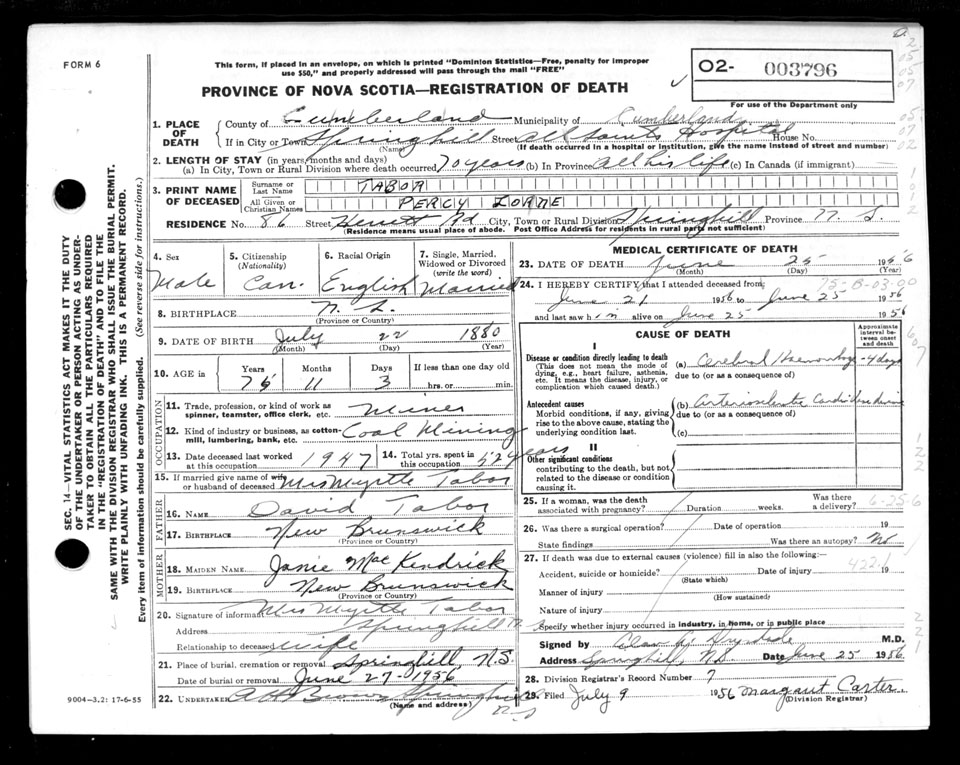 FORM 6
This form, if placed in an envelope, on which is printed "Dominion Statistics—Free, penalty for improper
use $50," and properly addressed will pass through the mail "FREE"
O2- 003796
For use of the Department only
PROVINCE OF NOVA SCOTIA—REGISTRATION OF DEATH
1. PLACE OF DEATH County of Cumberland Municipality of Cumberland
If in City or Town Springhill (Name) Street All Saints Hospital House No.
(If death occurred in a hospital or institution, give the name instead of street and number)
2. LENGTH OF STAY (in years, months and days)
(a) In City, Town or Rural Division where death occurred 70 years (b) In Province All his life (c) In Canada (if immigrant)
3. PRINT NAME OF DECEASED Surname or Last Name TABOR
All Given or Christian Names PERCY LORNE
RESIDENCE No. 86 Street City, Town or Rural Division Springhill Province N. S.
(Residence means usual place of abode. Post Office Address for residents in rural parts not sufficient)
4. Sex Male
5. Citizenship (Nationality) Can.
6. Racial Origin English
7. Single, Married, Widowed or Divorced (write the word) Married
8. BIRTHPLACE N. S. (Province or Country)
9. DATE OF BIRTH July (Month) 22 (Day) 1880 (Year)
10. AGE in Years 75 Months 11 Days 3 If less than one day old hrs. or min.
OCCUPATION
11. Trade, profession or kind of work as spinner, teamster, office clerk, etc. Miner
12. Kind of industry or business, as cotton-mill, lumbering, bank, etc. Coal Mining
13. Date deceased last worked at this occupation 1947 14. Total yrs. spent in this occupation 52 years
15. If married give name of wife or husband of deceased Mrs Myrtle Tabor
FATHER
16. NAME David Tabor
17. BIRTHPLACE New Brunswick (Province or Country)
MOTHER
18. MAIDEN NAME Janie MacKendrick
19. BIRTHPLACE New Brunswick (Province or Country)
20. Signature of informant Mrs Myrtle Tabor
Address Springhill N.S.
Relationship to deceased wife
21. Place of burial, cremation or removal Springhill, N.S.
Date of burial or removal June 27-1956
22. UNDERTAKER A H Brown Springhill N.S. (Name and address)
MEDICAL CERTIFICATE OF DEATH
23. DATE OF DEATH June (Month) 25 (Day) 1956 (Year)
24. I HEREBY CERTIFY that I attended deceased from:
75-B-03-00
June 21 1956 to June 25 1956
and last saw him alive on June 25 1956
CAUSE OF DEATH
Approximate interval between onset and death
I
Disease or condition directly leading to death
(This does not mean the mode of dying, e.g., heart failure, asthenia, etc. It means the disease, injury, or complication which caused death.)
(a) Cerebral Haemorrhage 4 days
due to (or as a consequence of)
Antecedent causes
Morbid conditions, if any, giving rise to the above cause, stating the underlying condition last.
(b) Arteriosclerotic Cardio
due to (or as a consequence of)
(c)
II
Other significant conditions
contributing to the death, but not related to the disease or condition causing it.
25. If a woman, was the death associated with pregnancy? Duration weeks. Was there a delivery?
6-25-6
26. Was there a surgical operation? Date of operation 19
State findings Was there an autopsy? No
27. If death was due to external causes (violence) fill in also the following:—
Accident, suicide or homicide? (State which) Date of injury 19
422.1
Manner of injury (How sustained)
Nature of injury
Specify whether injury occurred in industry, in home, or in public place
Signed by M.D.
Address Springhill, N.S. Date June 25 1956
28. Division Registrar's Record Number 7
29. Filed July 9 1956 Margaret Carter (Division Registrar)
SEC. 14—VITAL STATISTICS ACT MAKES IT THE DUTY
OF THE UNDERTAKER OR PERSON ACTING AS UNDER-
TAKER TO OBTAIN ALL THE PARTICULARS REQUIRED
IN THE "REGISTRATION OF DEATH" AND TO FILE THE
SAME WITH THE DIVISION REGISTRAR WHO SHALL ISSUE THE BURIAL PERMIT.
WRITE PLAINLY WITH UNFADING INK. THIS IS A PERMANENT RECORD.
Every item of information should be carefully supplied. (See reverse side for instructions.)
9004—3.2: 17-6-55